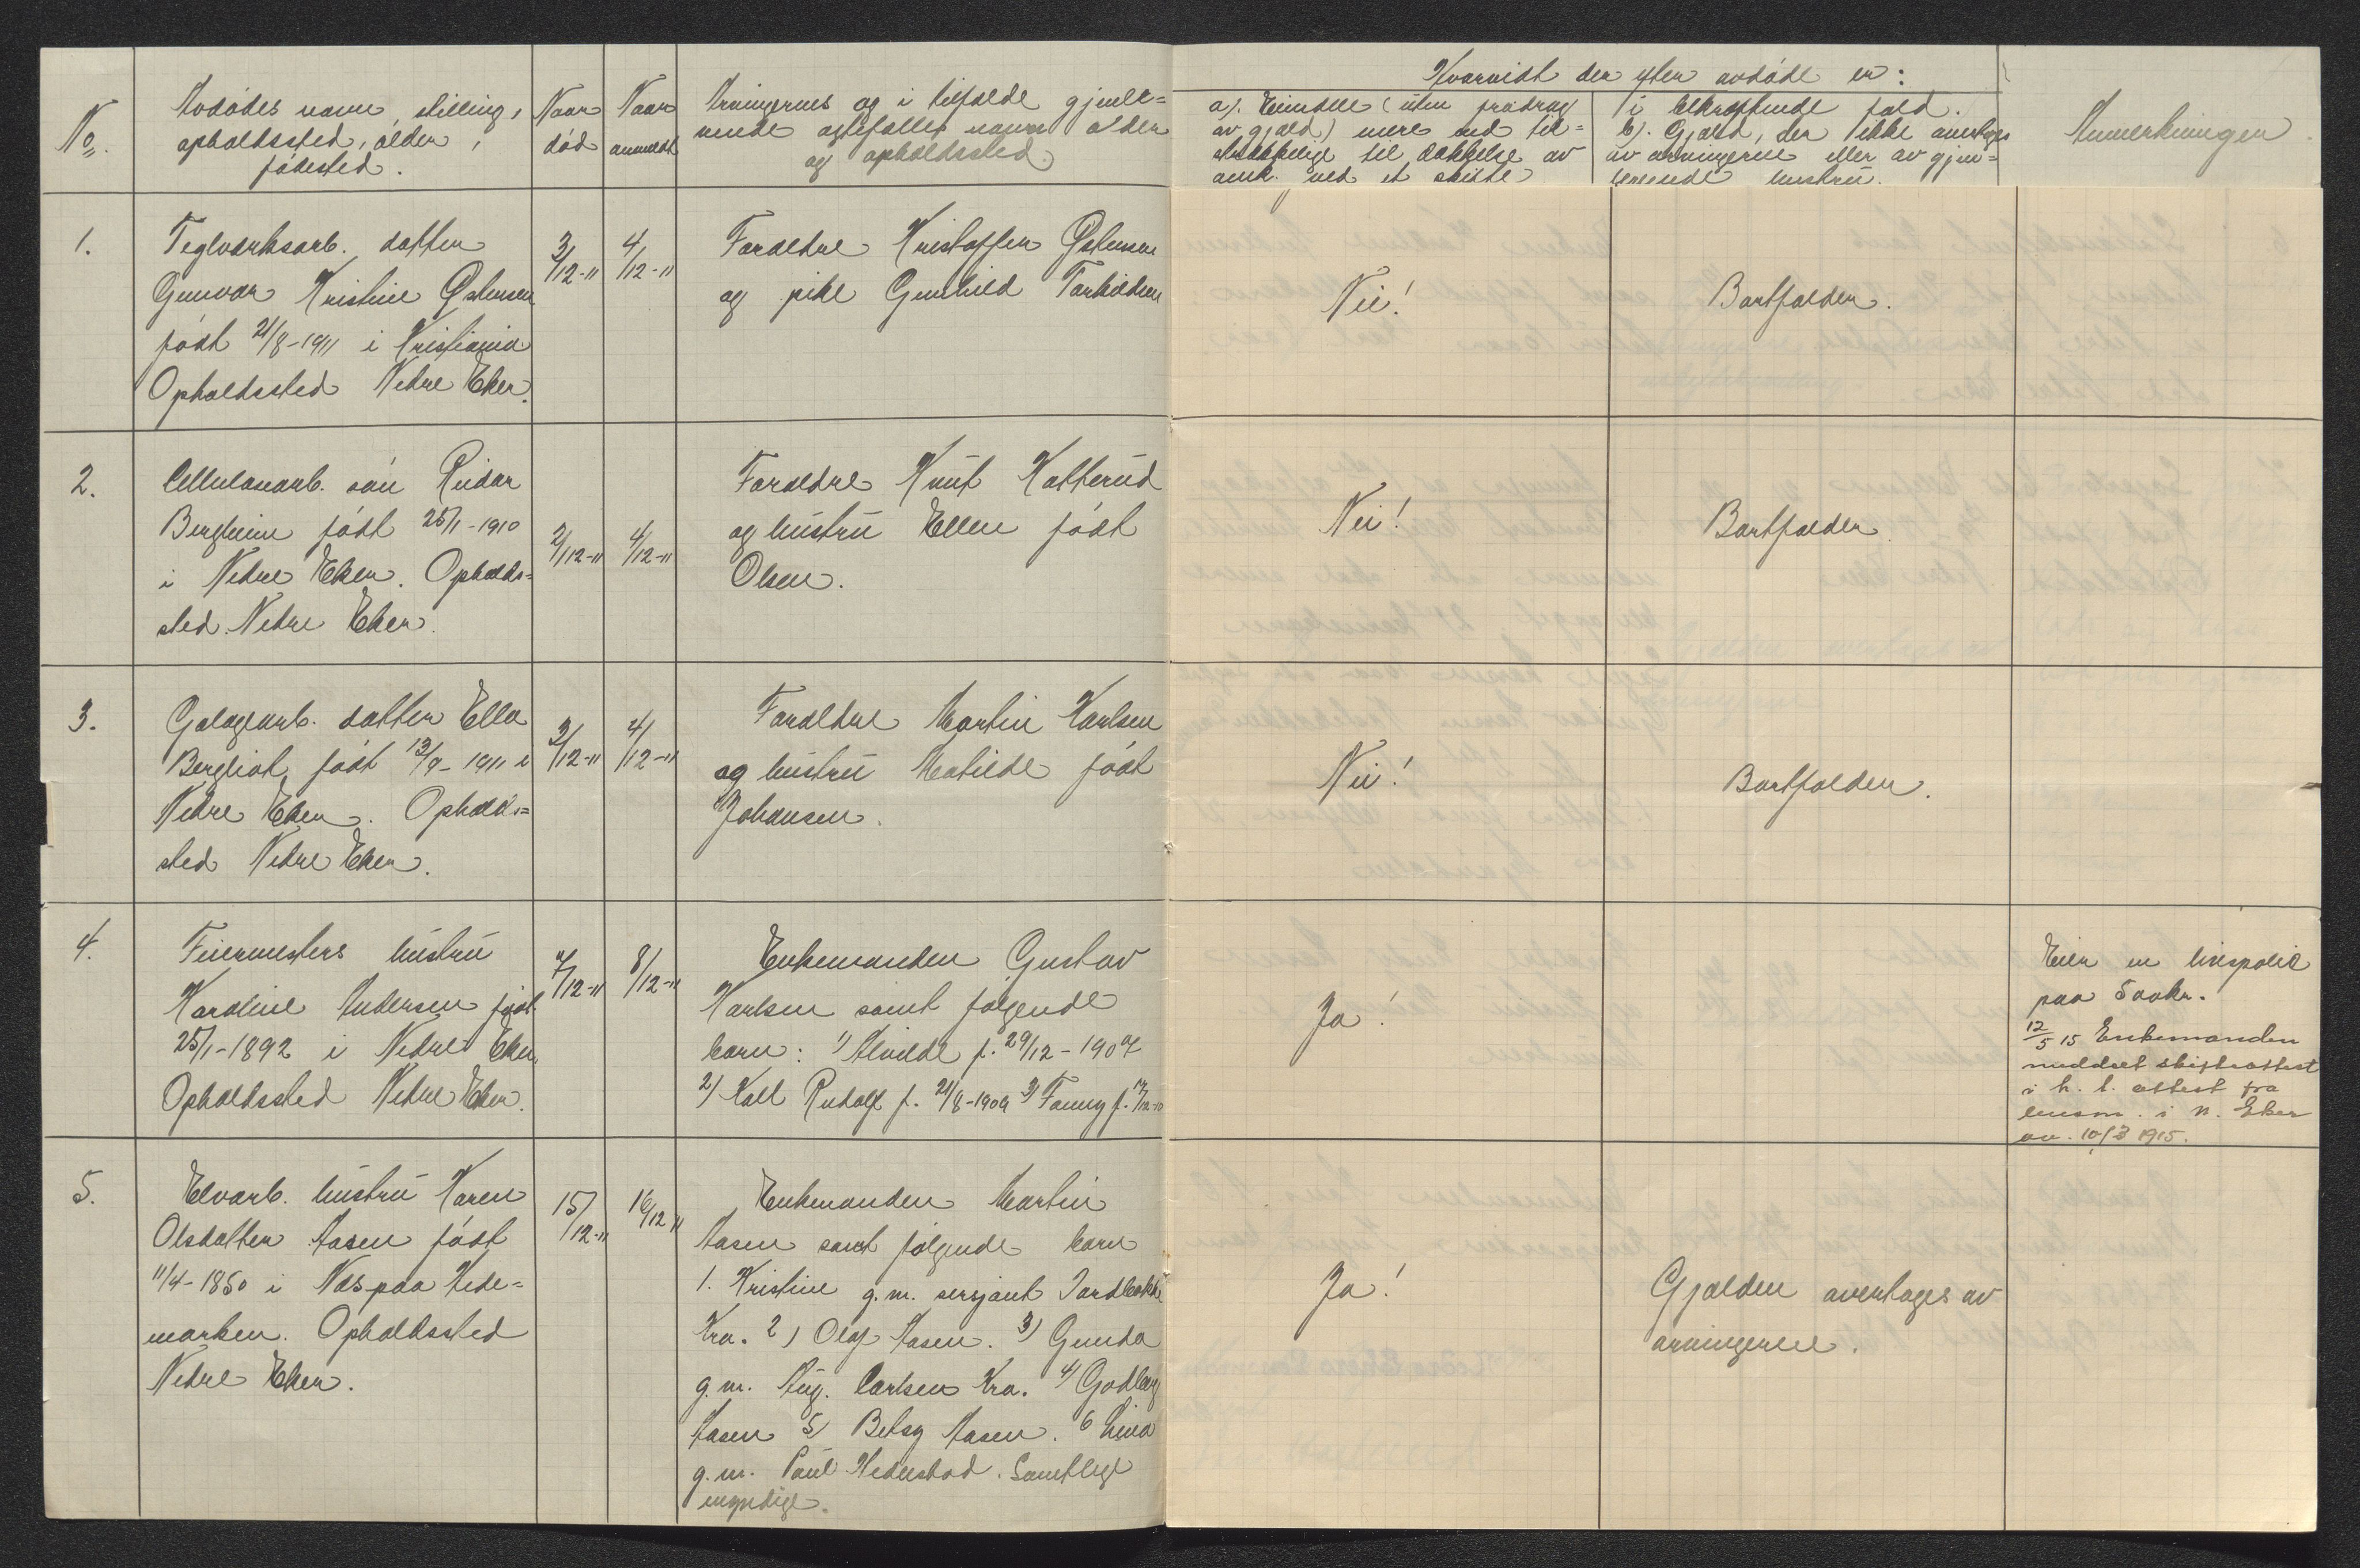 No.
Avdødes navn, stilling,
opholdssted, alder,
fødested.
Naar
død
Naar
anmeldt
Arvingernes og i tilfælde gjenle-
vende ægtefælles navn alder
og opholdssted.
Hvorvidt der efter avdøde er:
a). Eiendele (uten fradrag
av gjæld) mere end til-
strækkelige til dækkelse av
omk. ved et skifte
i bekræftende fald.
b). Gjæld, der ikke overtages
av arvingerne eller av gjen-
levende hustru.
Anmerkninger.
1.
Teglværksarb. datter
Gunvor Kristine Østensen
født 21/8-1911 i Kristiania
Opholdssted Nedre Eker.
3/12-11
4/12-11
Forældre Kristoffer Østensen
og pike Gunhild Torkildsen
Nei!
Bortfalder.
2.
Cellulosearb. søn Reidar
Bergheim født 25/1-1910
i Nedre Eker. Opholds-
sted Nedre Eker.
2/12-11
4/12-11
Forældre Knut Katterud
og hustru Ellen født
Olsen.
Nei!
Bortfalder
3.
datter Ella
Bergliot født 13/9-1911 i
Nedre Eker. Opholds-
sted Nedre Eker.
3/12-11
4/12-11
Forældre Martin Karlsen
og hustru Matilde født
Johansen.
Nei!
Bortfalder.
4.
Feiermesters hustru
Karoline Andersen født
25/1-1892 i Nedre Eker
Opholdssted Nedre Eker.
7/12-11
8/12-11
Enkemanden Gustav
Karlsen samt følgende
barn: 1) Alvilde f. 29/12-1907
2) Kall Rudolf f. 21/8-1909 3) Fanny f. 17/12-10
Ja!
Eier en livspolice
paa 500kr.
12/5 15 Enkemanden
meddelt skifteattest
i h. t. attest fra
lensm. i N. Eker
av. 10/3 1915.
5.
Elvarb. hustru Karen
Olsdatter Aasen født
11/4-1850 i Næs paa Hede-
marken. Opholdssted
Nedre Eker.
15/12-11
16/12 11
Enkemanden Martin
Aasen samt følgende barn
1. Kristine g.m. sersjant
Kra. 2) Olaf Aasen. 3) Gunda
g.m. Aug. Carlsen Kra. 4) Godberg
Aasen 5) Betsy Aasen. 6 Lina
g.m. Paul Hedenstad. Samtlige
myndige.
Ja!
Gjælden overtages av
arvingerne.